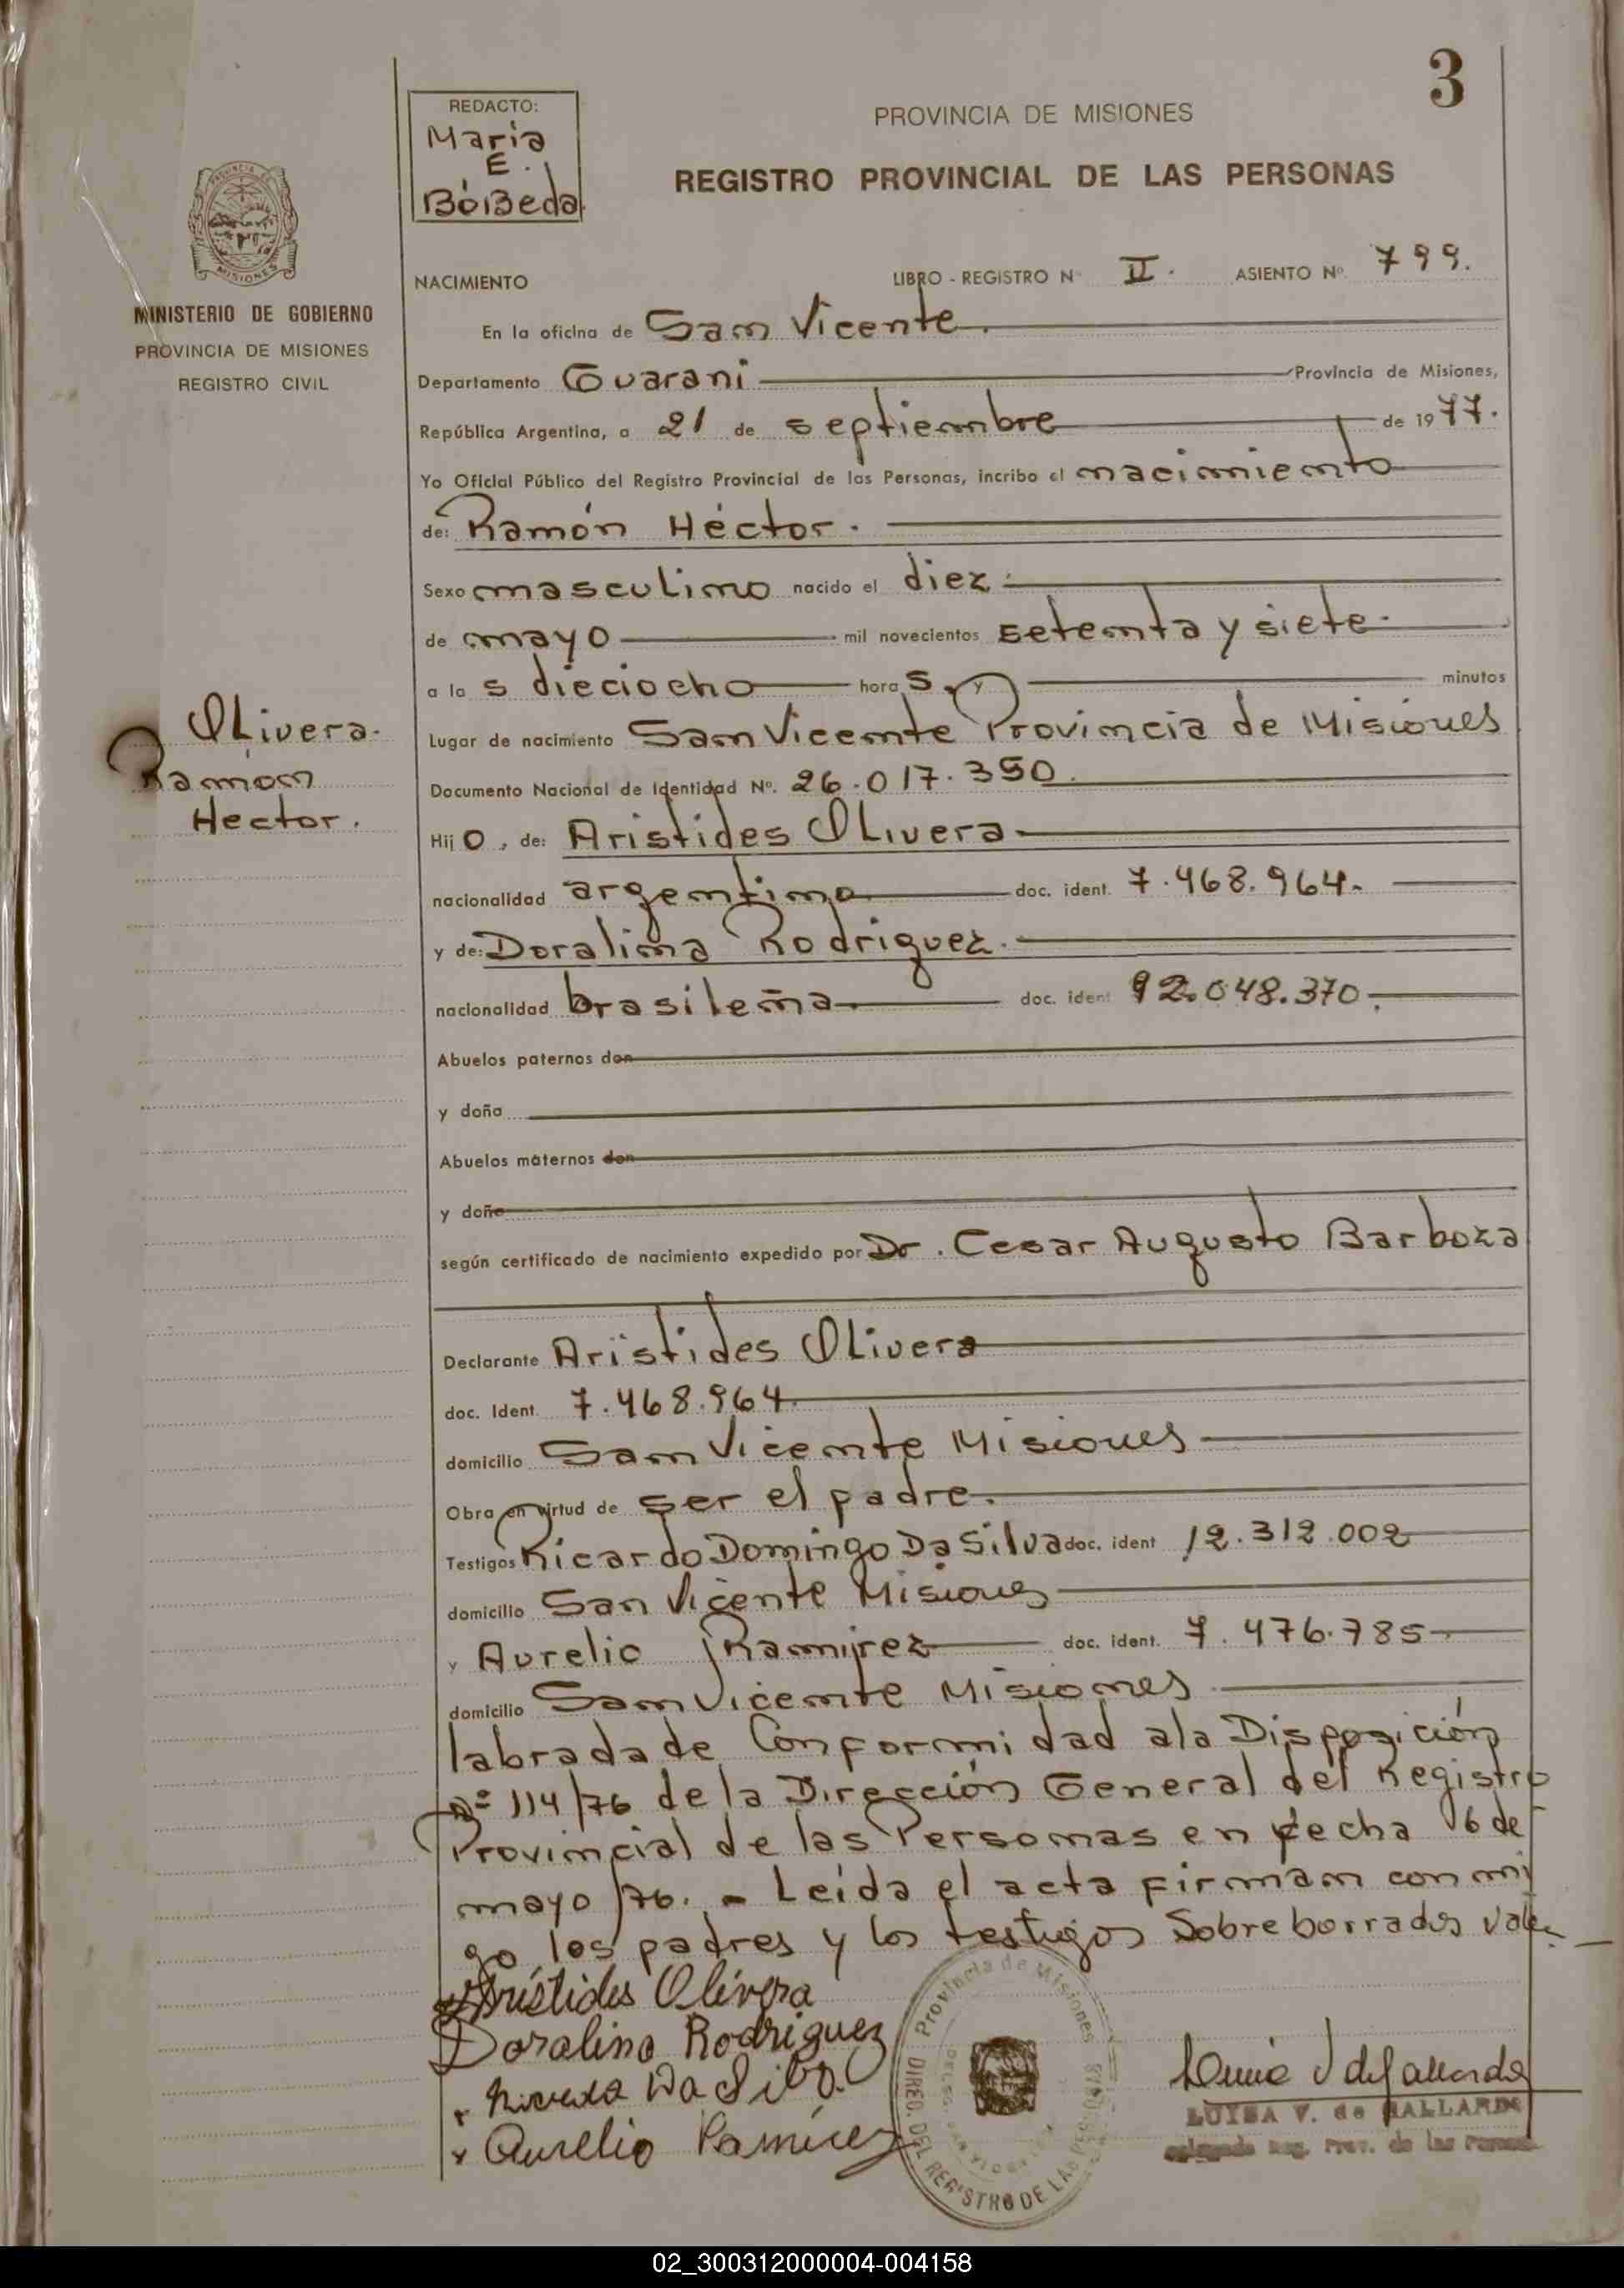 3
REDACTO:
Maria
E.
BóBeda
PROVINCIA DE MISIONES
REGISTRO PROVINCIAL DE LAS PERSONAS
MINISTERIO DE GOBIERNO
PROVINCIA DE MISIONES
REGISTRO CIVIL
NACIMIENTO LIBRO - REGISTRO Nº II. ASIENTO Nº. 799.
En la oficina de San Vicente.
Departamento Guarani Provincia de Misiones,
República Argentina, a 21 de septiembre de 1977.
Yo Oficial Público del Registro Provincial de las Personas, incribo el nacimiento
de: Ramón Héctor.
Sexo masculino nacido el diez
de mayo mil novecientos setenta y siete.
a la s dieciocho hora s y minutos
Olivera.
Ramon
Hector.
Lugar de nacimiento San Vicente Provincia de Misiones
Documento Nacional de Identidad Nº. 26.017.350.
Hij o, de: Aristides Olivera
nacionalidad argentino doc. ident. 7.468.964.
y de: Doralina Rodriguez.
nacionalidad brasileña doc. ident 92.048.370.
Abuelos paternos don
y doña
Abuelos maternos don
y doña
según certificado de nacimiento expedido por Dr. Cesar Augusto Barboza
Declarante Aristides Olivera
doc. Ident. 7.468.964.
domicilio San Vicente Misiones
Obra en virtud de ser el padre.
Testigos Ricardo Domingo Da Silva doc. ident 12.312.002
domicilio San Vicente Misiones
y Aurelio Ramirez doc. ident. 7.476.785
domicilio San Vicente Misiones
labrada de Conformidad a la Disposición
Nº 114/76 de la Dirección General del Registro
Provincial de las Personas en fecha 16 de
mayo/76. - Leída el acta firman con mi
go los padres y los testigos Sobreborrados Vale.
Aristides Olivera
Doralina Rodriguez
Da Silva
Aurelio Ramirez
Provincia de Misiones
DIREC. DEL REGISTRO DE LAS PERSONAS
LUISA V. de GALLARDO
Reg. Prov. de las Personas
02_300312000004-004158